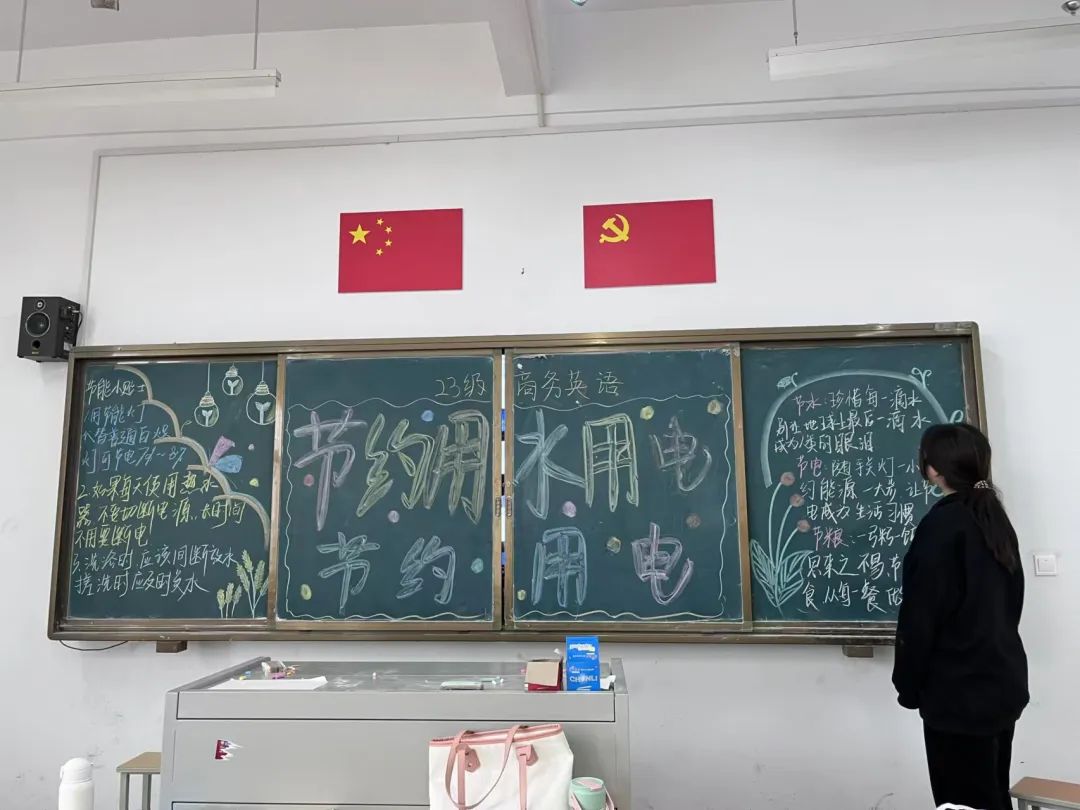 节能小贴士
1.用节能灯
代替普通白炽
灯可节电70%~80%
2.如果每天使用热水
器,不要切断电源,长时间
不用要断电
3.洗浴时,应该间断放水
搓洗时应及时关水
23级 商务英语
节约用水用电
节约 用电
节水:珍惜每一滴水
别让地球上最后一滴水
成为人类的眼泪
节电:随手关灯一小
约能源一大步,让
电成为生活习惯
节粮:一粥一饭
思来之不易,节
食从每一餐做
CHENLI